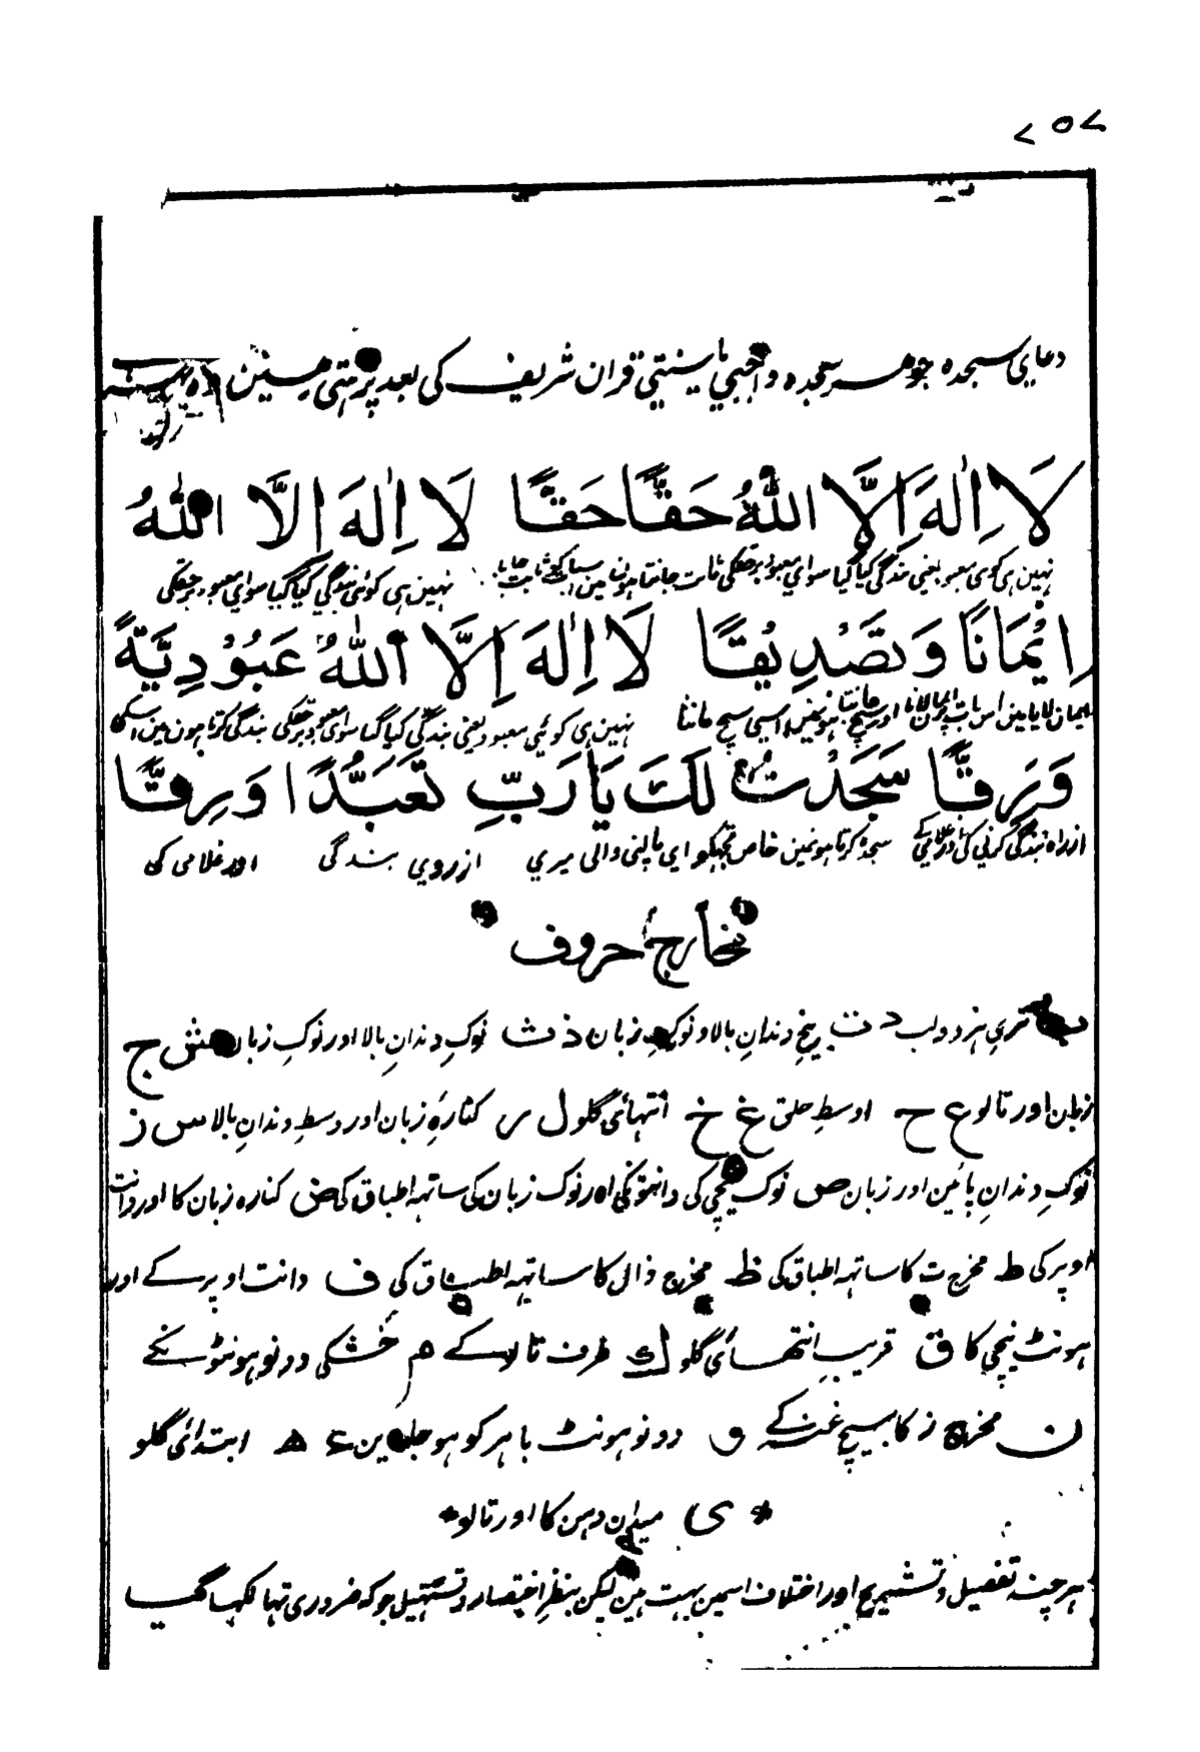 ۷۵۷
دعاي سجده جو هر سجده واجبي يا سنتي قران شریف کی بعد پڑهتی هین
لَا اِلٰهَ اِلَّا اللّٰهُ حَقًّا حَقًّا لَا اِلٰهَ اِلَّا اللّٰهُ
نهین هی کوئی معبود یعنی بندگی کیا گیا سواي معبود برحقکی نهین هی کوئی بندگي کیا گیا سواي معبود برحقکی
اِیْمَانًا وَتَصْدِیْقًا لَا اِلٰهَ اِلَّا اللّٰهُ عَبُوْدِیَّةً
ایمان لایا مین اس بات پر نهین هی کوئی معبود یعنی بندگي کیا گیا سواي معبود برحقکی بندگی کرتا هون مین اسکی
وَرِقًّا سَجَدْتُ لَكَ یَا رَبِّ تَعَبُّدًا وَرِقًّا
ازراه بندگی کرنی کی سجده کرتا هونمین خاص تجهکو ای پالنی والی میری ازروي بندگی اور غلامی کی
مخارج حروف
تری هر دو لب د ت بیخِ دندانِ بالا و نوکِ زبان ذ ث نوکِ دندانِ بالا اور نوکِ زبان ش ج
زبان اور تالو ع ح اوسطِ حلق غ خ انتهائ گلو ل ر کنارهٔ زبان اور وسطِ دندانِ بالا س ز
نوکِ دندانِ پائین اور زبان ص نوک نیچی کی دانتونکی اور نوک زبان کی ساتهه اطباق کی ض کناره زبان کا اور دانت
اوپر کی ط مخرج ت کا ساتهه اطباق کی ظ مخرج ذال کا ساتهه اطباق کی ف دانت اوپر کے اور
هونٹ نیچی کا ق قریبِ انتهائ گلو ك طرف تالو کے م خُشکی دونو هونٹونکے
ن مخرج ز کا بیچ غنه کے و دونو هونٹ باهر کو هو جاوین ء ه ابتدائ گلو
* ی میدان دهن کا اور تالو *
هر چند تفصیل و تشریح اور اختلاف اسمین بهت هین لیکن بنظرِ اختصار و تسهیل جو که ضروری تها لکها گیا